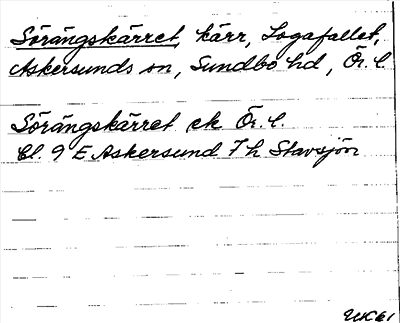 Sörängskärret, kärr, Logafallet,
Askersunds sn, Sundbo hd, Ör. l.
Sörängskärret ek Ör. l.
Bl. 9 E Askersund 7 h Stavsjön